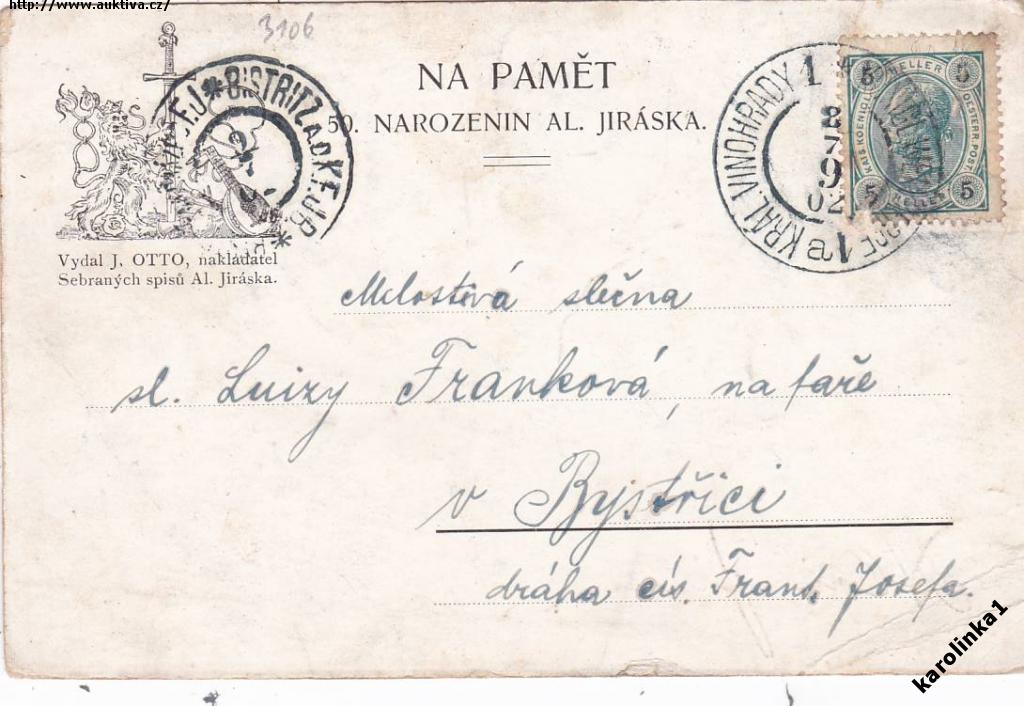 http://www.auktiva.cz/
3106
NA PAMĚT
50. NAROZENIN AL. JIRÁSKA.
BISTRITZ A.D.K.F.J.B.
KRÁL. VINOHRADY 1
8
7
9
02
1a
5 HELLER 5
KAIS. KOENIGL. OESTERR. POST
5 HELLER 5
Vydal J. OTTO, nakladatel
Sebraných spisů Al. Jiráska.
Melostivá slečna
sl. Luizy Franková, na faře
v Bystřici
dráha cís. Frant. Josefa.
karolinka1